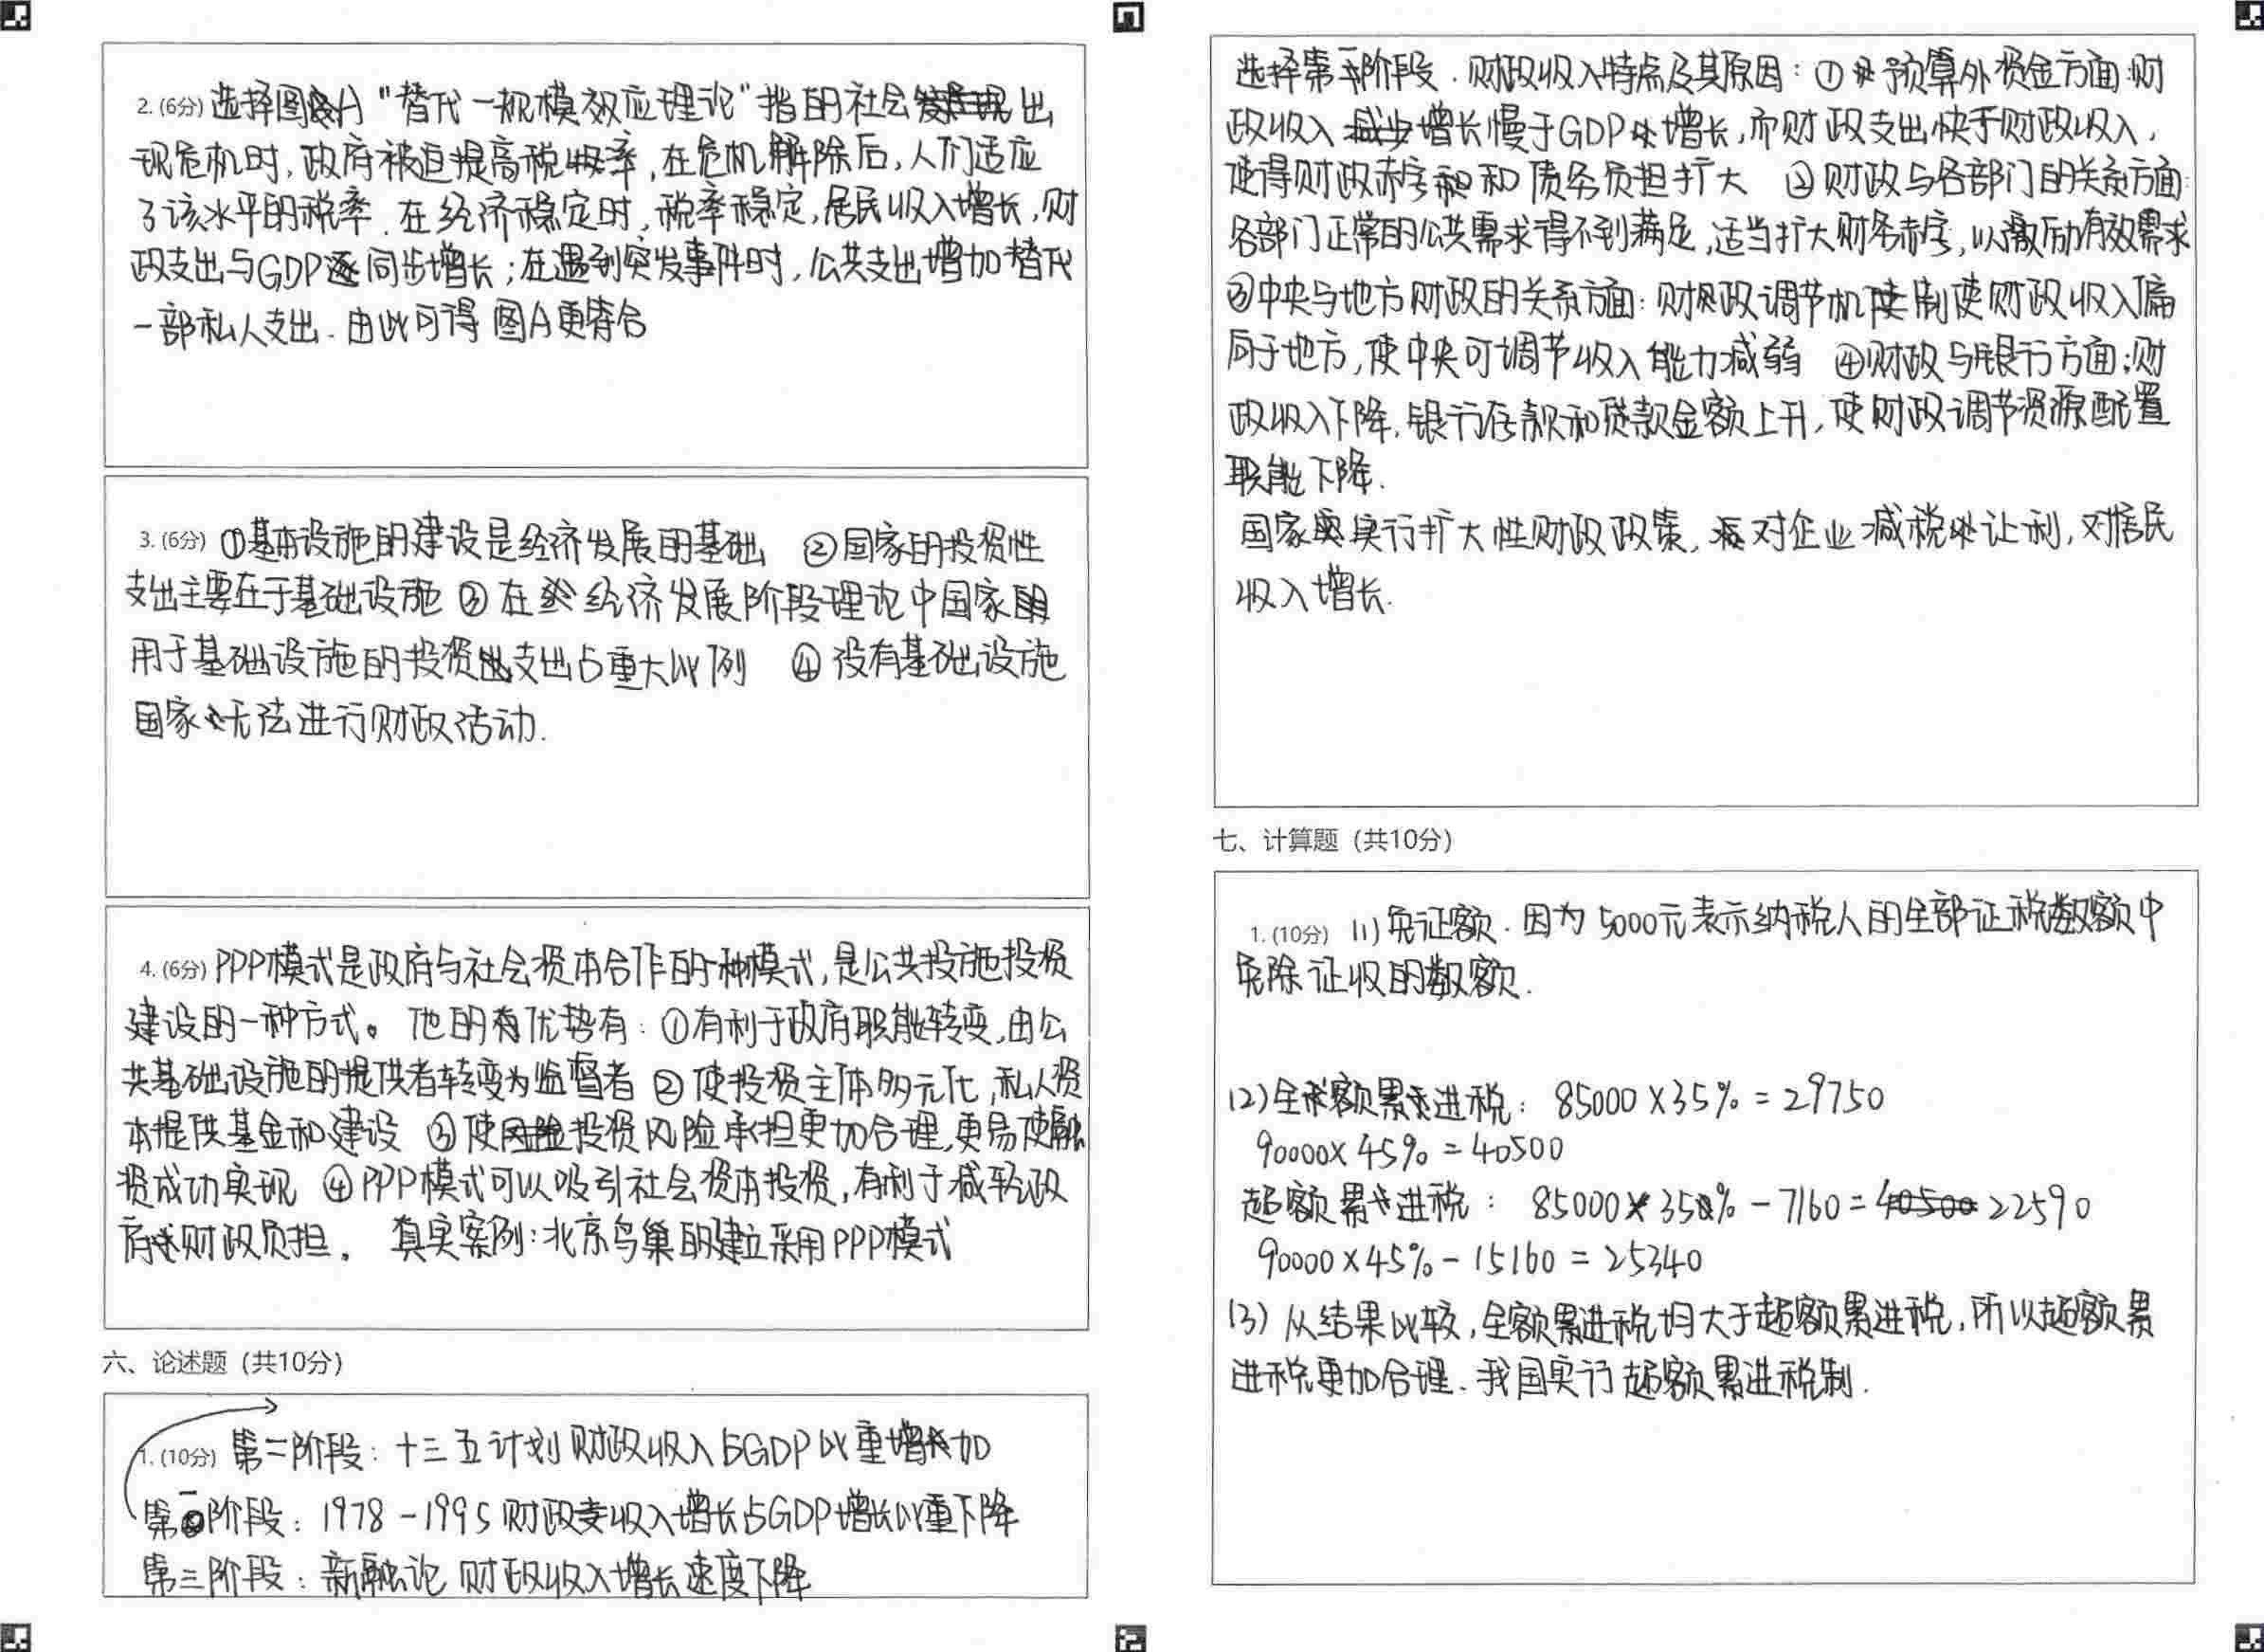 2. (6分) 选择图A "替代一规模效应理论"指的社会出
现危机时,政府被迫提高税率,在危机解除后,人们适应
了该水平的税率.在经济稳定时,税率稳定,居民收入增长,财
政支出与GDP同步增长;在遇到突发事件时,公共支出增加替代
一部私人支出.由此可得 图A更符合
3. (6分) ①基本设施的建设是经济发展的基础 ②国家的投资性
支出主要在于基础设施 ③在经济发展阶段理论中国家
用于基础设施的投资支出占重大比例 ④没有基础设施
国家无法进行财政活动.
4. (6分) PPP模式是政府与社会资本合作的一种模式,是公共投施投资
建设的一种方式。他的优势有:①有利于政府职能转变,由公
共基础设施的提供者转变为监督者 ②使投资主体多元化,私人资
本提供基金和建设 ③使投资风险承担更加合理,更易使融
资成功实现 ④PPP模式可以吸引社会资本投资,有利于减轻政
府财政负担。 真实案例:北京鸟巢的建立采用PPP模式
六、论述题(共10分)
1. (10分) 第二阶段:十三五计划 财政收入占GDP比重增加
第一阶段:1978-1995 财政收入增长占GDP增长比重下降
第三阶段:新融论 财政收入增长速度下降
选择第一阶段.财政收入特点及其原因:①预算外资金方面:财
政收入增长慢于GDP增长,而财政支出快于财政收入,
使得财政赤字和债务负担扩大 ②财政与各部门的关系方面:
各部门正常的公共需求得不到满足,适当扩大财务赤字,以激励有效需求
③中央与地方财政的关系方面:财政调节机制使财政收入偏
向于地方,使中央可调节收入能力减弱 ④财政与银行方面:财
政收入下降,银行存款和贷款金额上升,使财政调节资源配置
职能下降.
国家实行扩大性财政政策,对企业减税让利,对居民
收入增长.
七、计算题(共10分)
1. (10分) (1)免证额.因为5000元表示纳税人的全部证税数额中
免除证收的数额.
(2)全额累进税: 85000×35%=29750
90000×45%=40500
超额累进税: 85000×35%-7160=22590
90000×45%-15160=25340
(3)从结果比较,全额累进税均大于超额累进税,所以超额累
进税更加合理.我国实行超额累进税制.